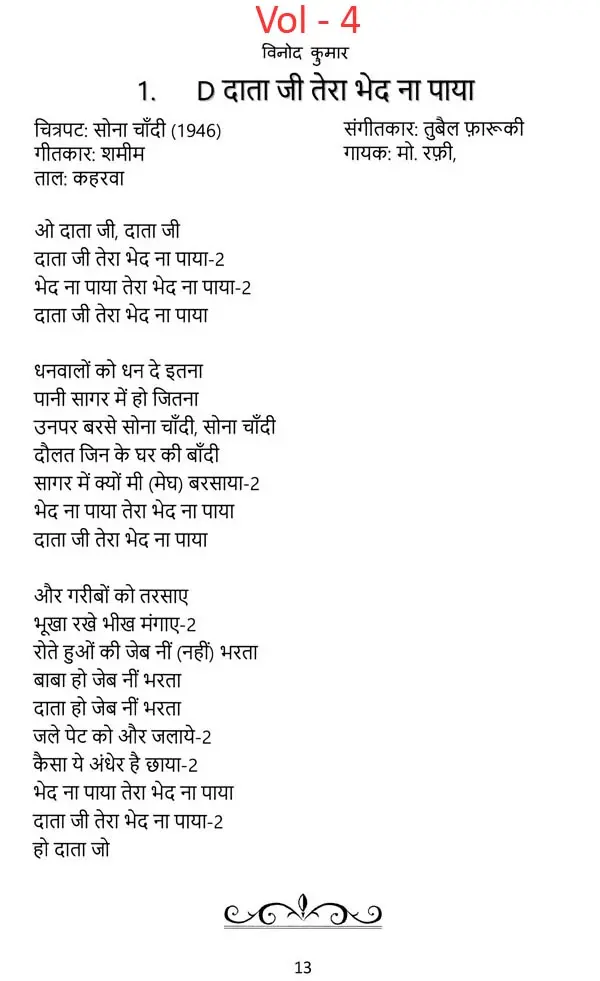 Vol - 4
विनोद कुमार
1. D दाता जी तेरा भेद ना पाया
चित्रपट: सोना चाँदी (1946) संगीतकार: तुबैल फ़ारूकी
गीतकार: शमीम गायक: मो. रफ़ी,
ताल: कहरवा
ओ दाता जी, दाता जी
दाता जी तेरा भेद ना पाया-2
भेद ना पाया तेरा भेद ना पाया-2
दाता जी तेरा भेद ना पाया
धनवालों को धन दे इतना
पानी सागर में हो जितना
उनपर बरसे सोना चाँदी, सोना चाँदी
दौलत जिन के घर की बाँदी
सागर में क्यों मी (मेघ) बरसाया-2
भेद ना पाया तेरा भेद ना पाया
दाता जी तेरा भेद ना पाया
और गरीबों को तरसाए
भूखा रखे भीख मंगाए-2
रोते हुओं की जेब नीं (नहीं) भरता
बाबा हो जेब नीं भरता
दाता हो जेब नीं भरता
जले पेट को और जलाये-2
कैसा ये अंधेर है छाया-2
भेद ना पाया तेरा भेद ना पाया
दाता जी तेरा भेद ना पाया-2
हो दाता जो
13